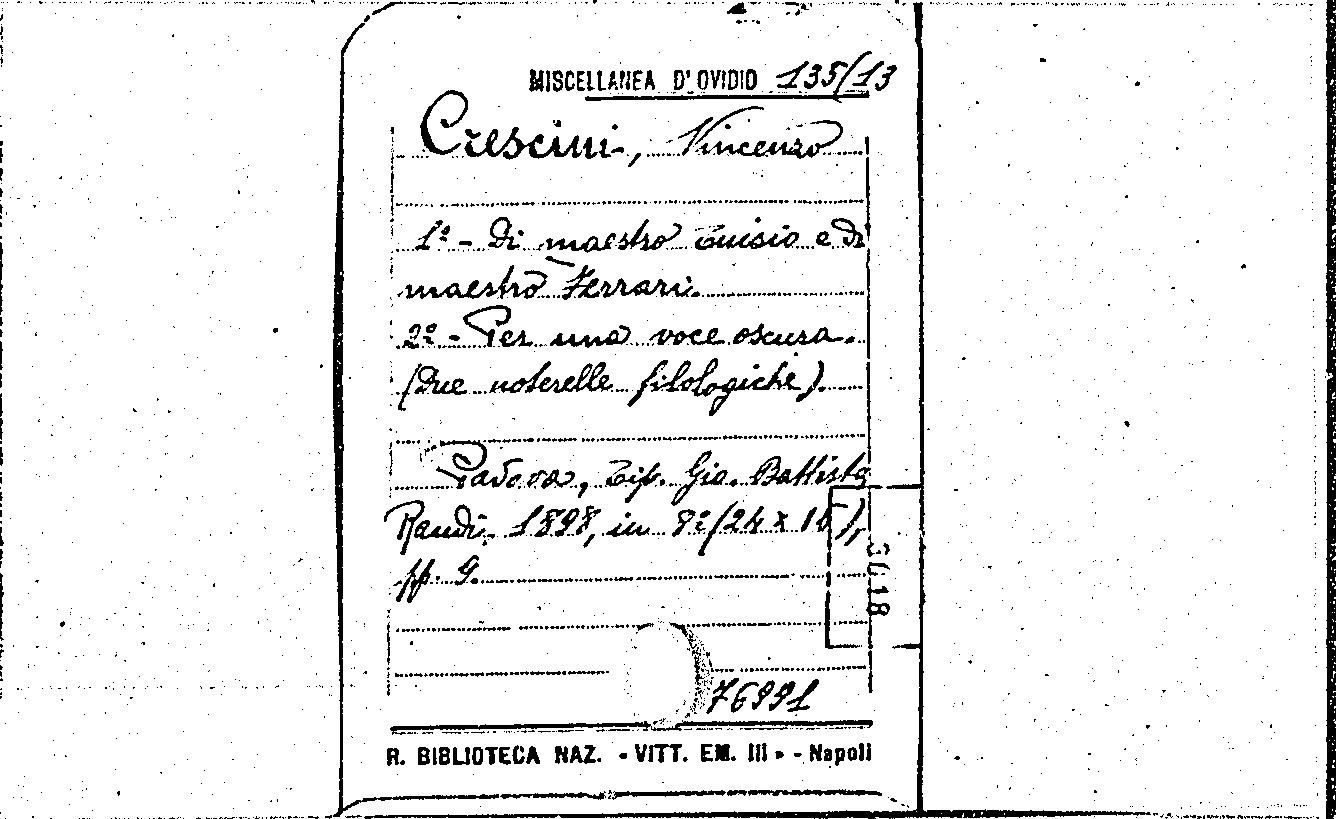 MISCELLANEA D'OVIDIO 135/13
Crescini, Vincenzo
1º - Di maestro Tuisio e di
maestro Ferrari.
2º - Per una voce oscura.
(Due noterelle filologiche).
Padova, Tip. Gio. Battista
Randi, 1898, in 8º (24 x 16),
pp. 9.
3618
76991
R. BIBLIOTECA NAZ. « VITT. EM. III » - Napoli